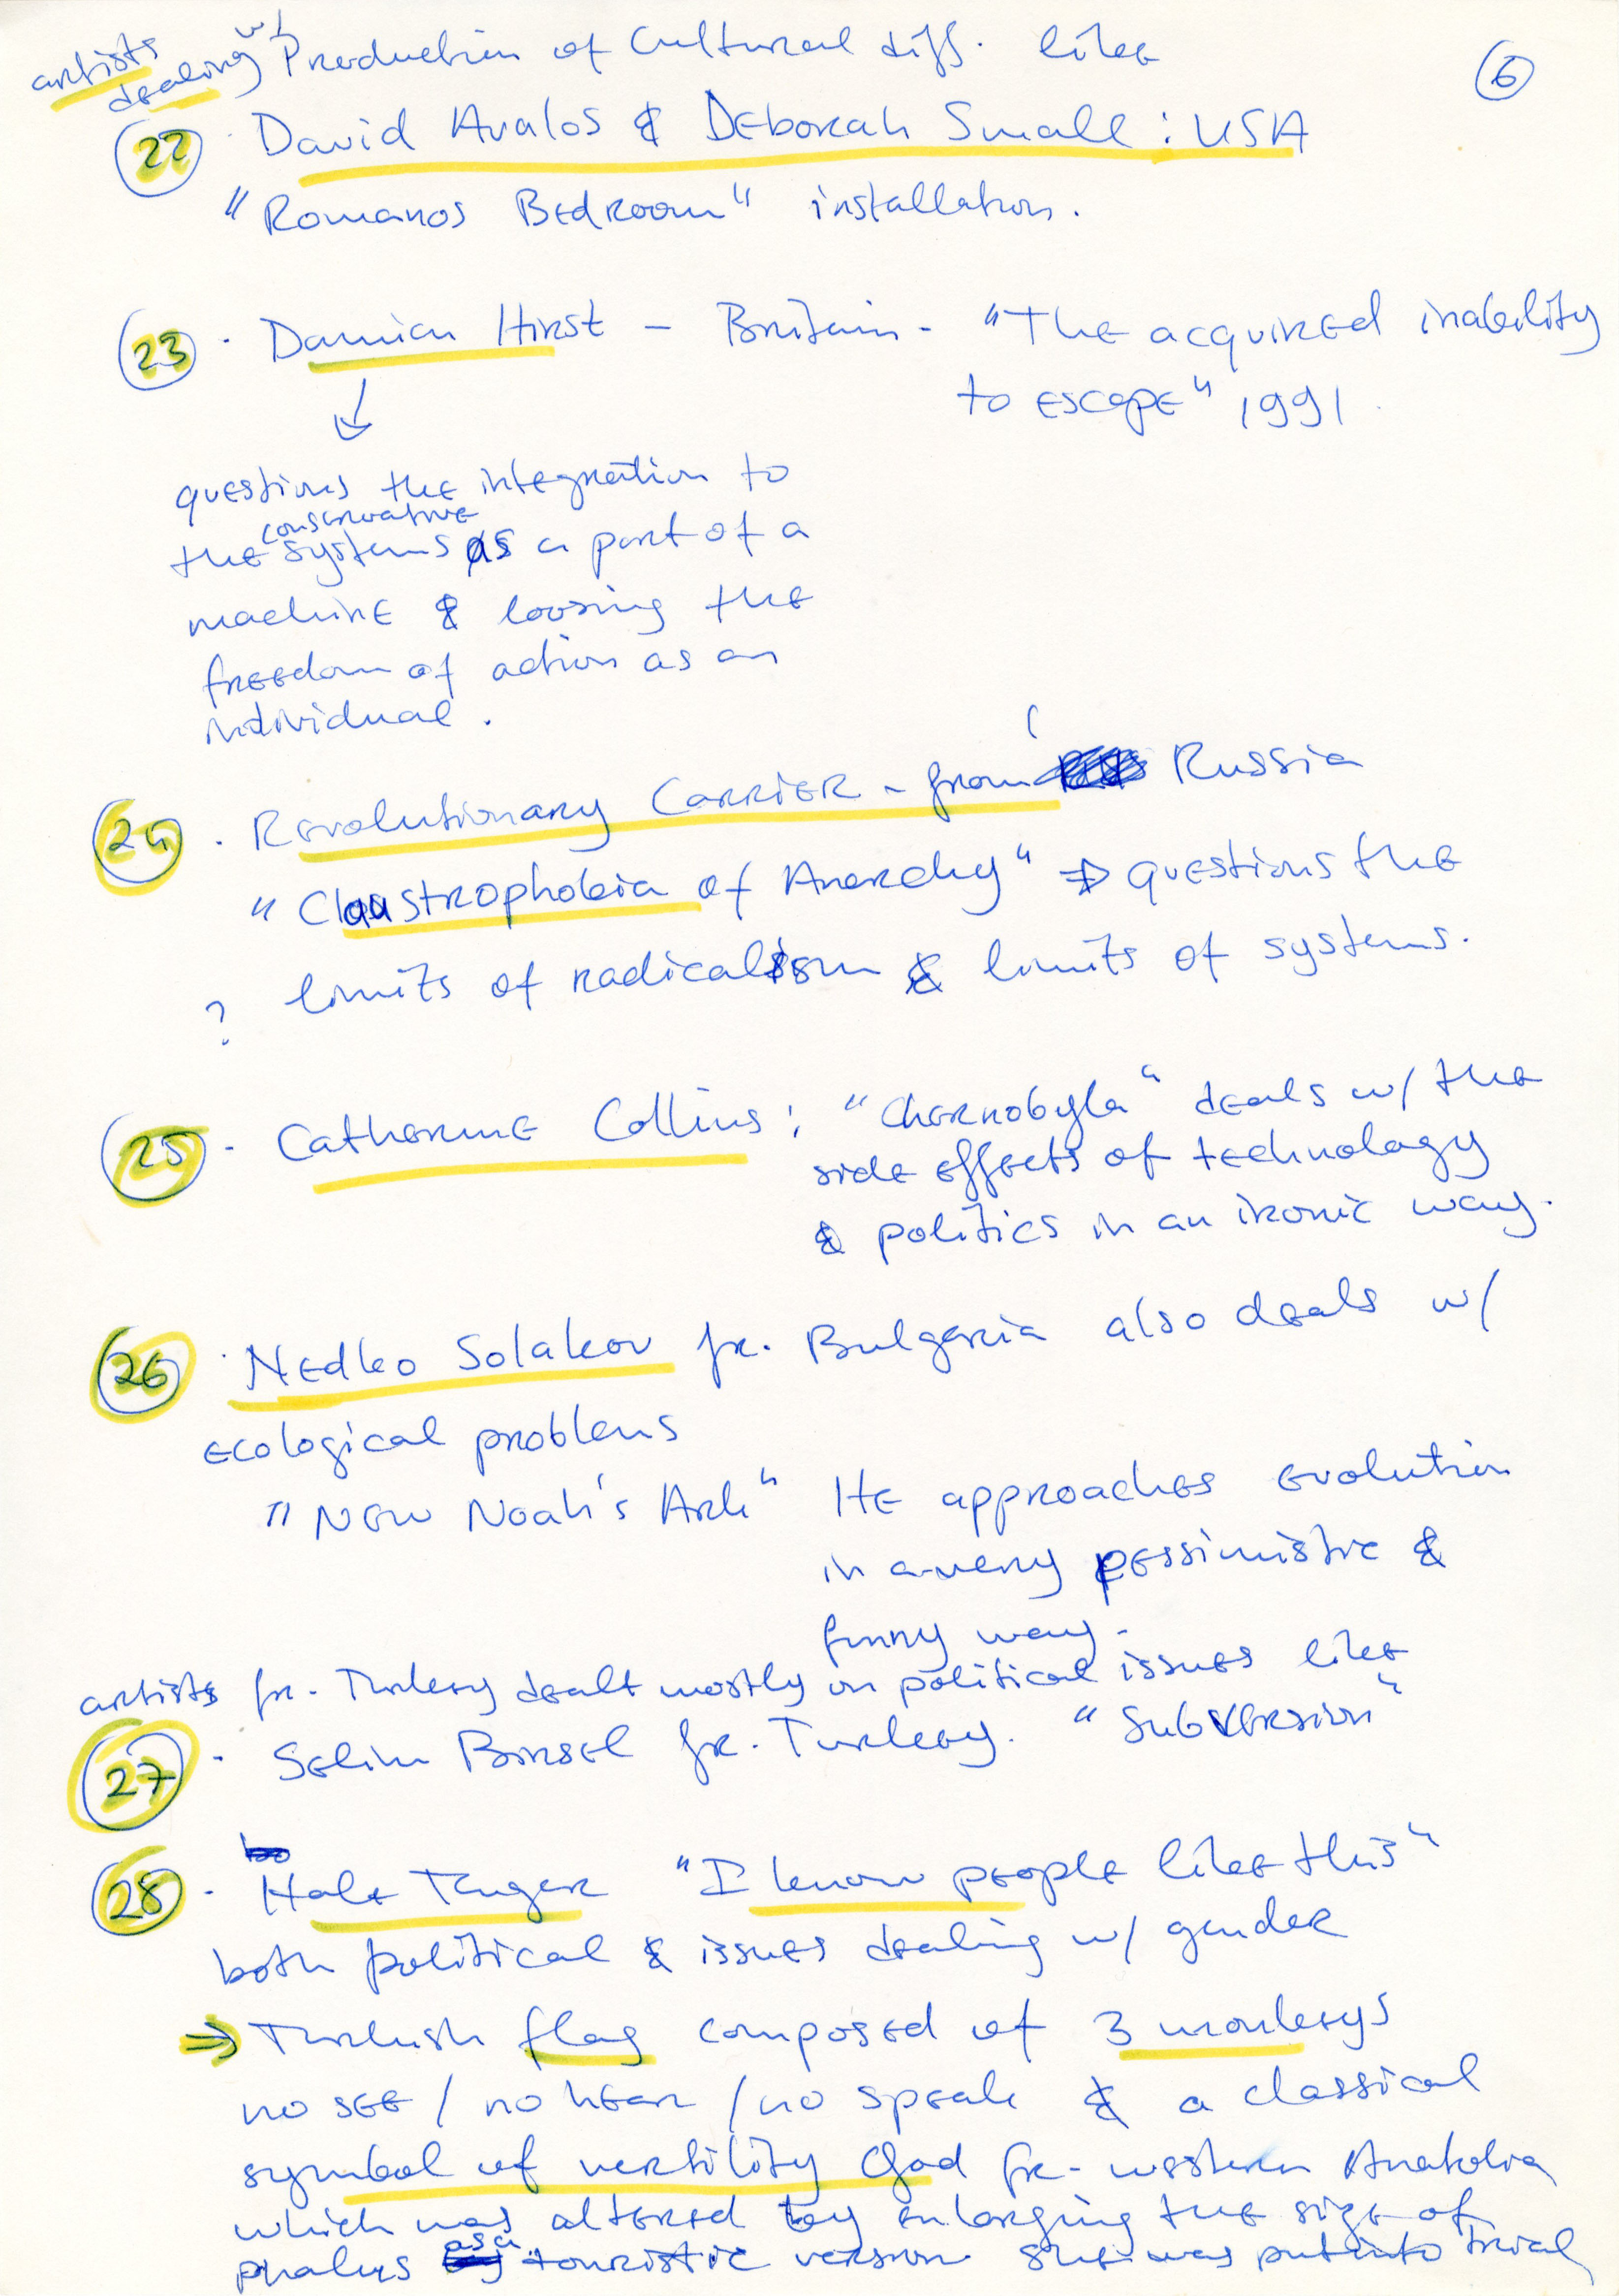 artists dealing w/ Production of Cultural diff. like
6
22 · David Avalos & Deborah Small : USA
"Romanos Bedroom" installation.
23 · Damien Hirst – Britain - "The acquired inability
to escape" 1991.
questions the integration to
the conservative systems as a part of a
machine & loosing the
freedom of action as an
individual.
24 · Revolutionary Carrier - from ( Russia
"Claustrophobia of Anarchy" ⇒ questions the
? limits of radicalism & limits of systems.
25 · Catherine Collins ; "Chernobyla" deals w/ the
side effects of technology
& politics in an ironic way.
26 · Nedko Solakov fr. Bulgaria also deals w/
ecological problems
"New Noah's Ark" He approaches evolution
in a very pessimistic &
funny way.
artists fr. Turkey dealt mostly on political issues like
27 · Selim Birsel fr. Turkey. "Subversion"
28 · Hale Tenger "I know people like this"
both political & issues dealing w/ gender
⇒ Turkish flag composed of 3 monkeys
no see / no hear / no speak & a classical
symbol of vertility God fr. western Anatolia
which was altered by enlarging the size of
phalus as a touristic version she was put into trial